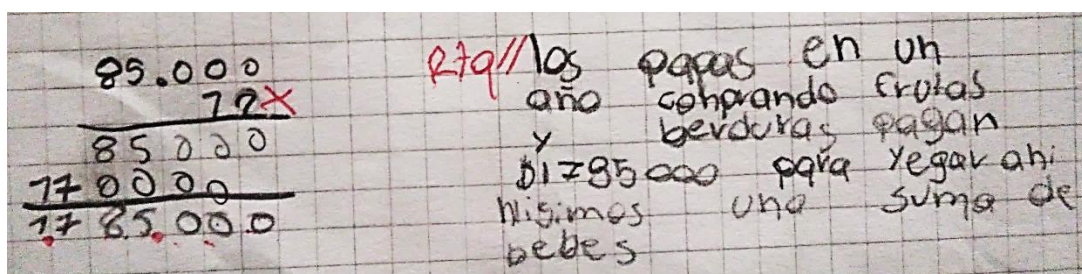 85.000
12x
85000
170000
1.785.000
Rta// los papas en un
año comprando frutas
y berduras pagan
$1785000 para yegar ahi
hisimos una suma de
bebes